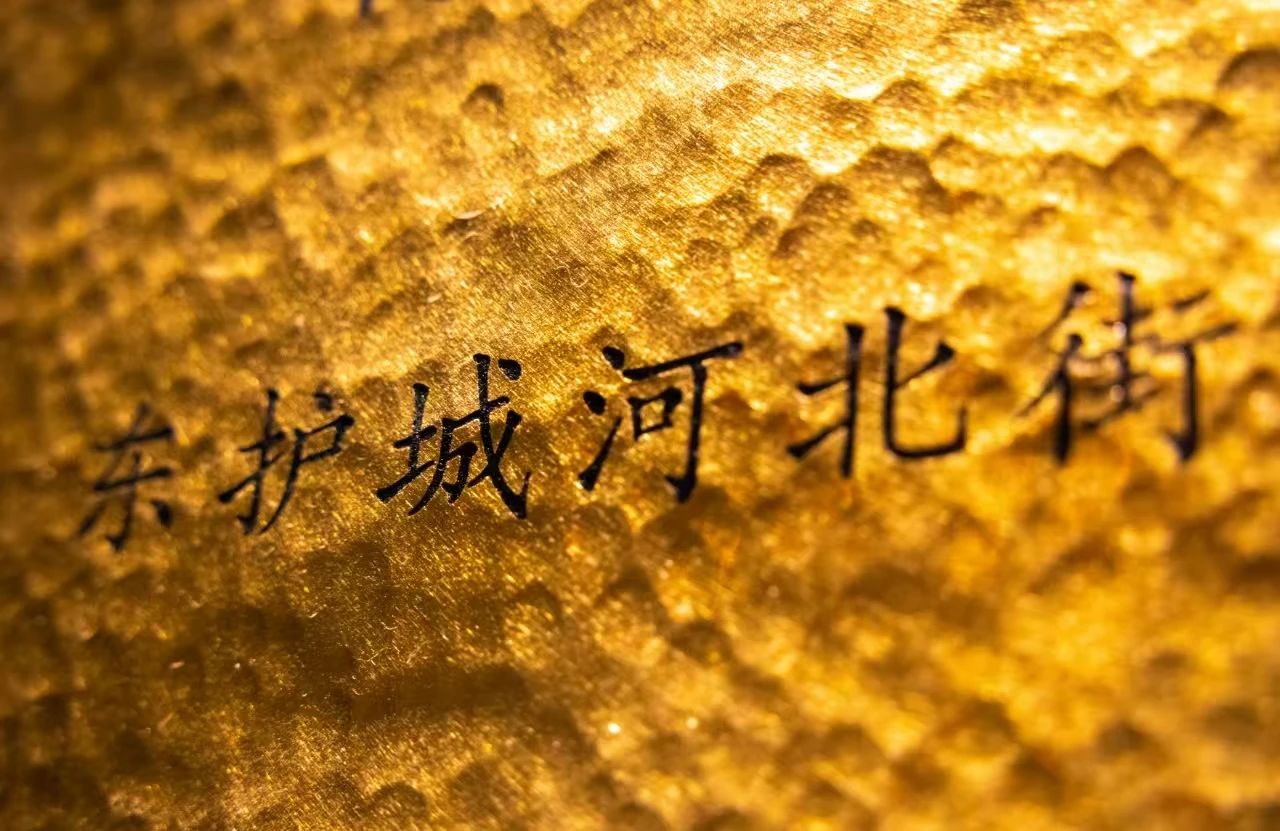 东护城河北街